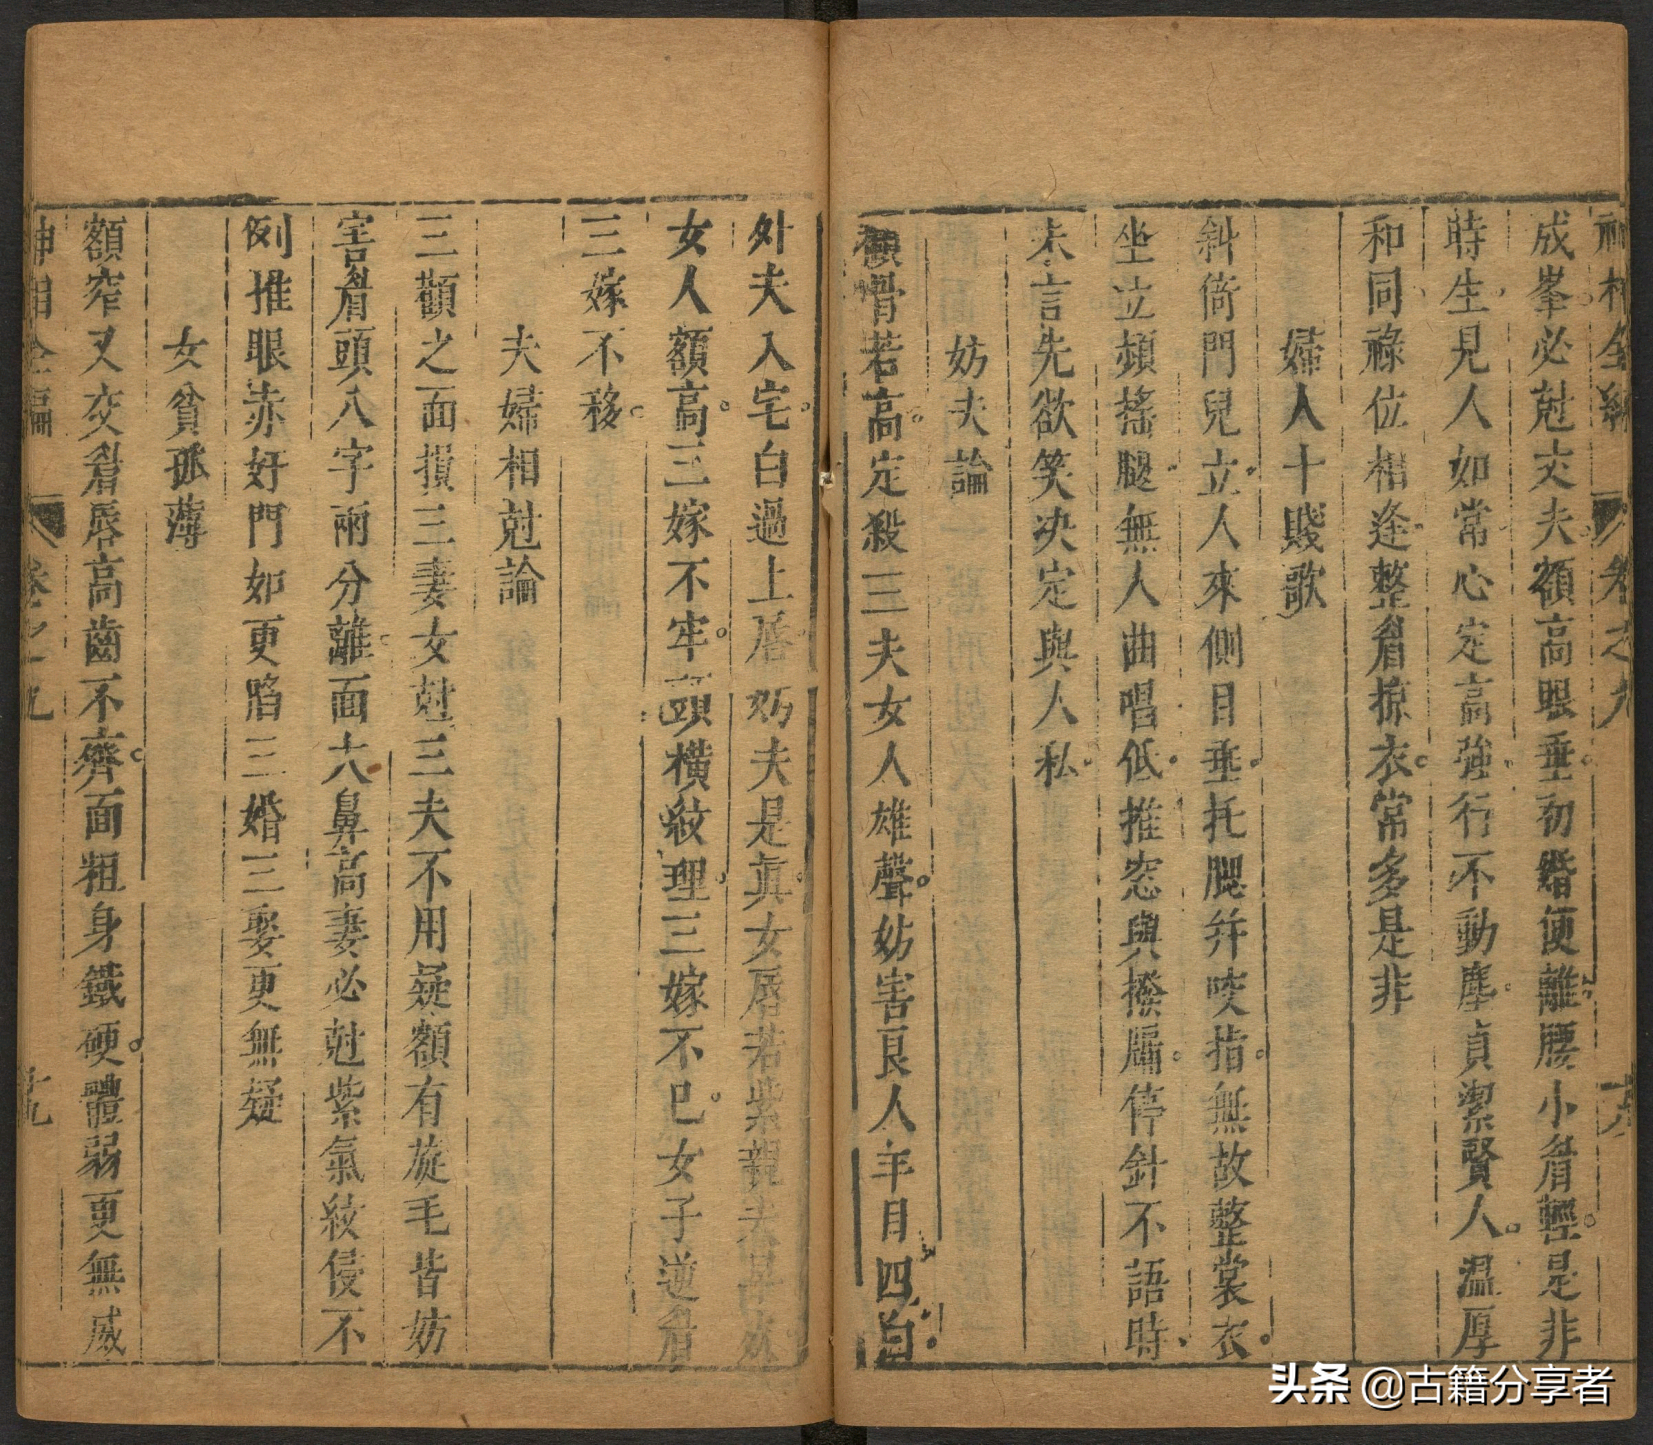 神相全編 卷之九 十八
成峯必尅丈夫額高眼垂初婚便離腰小眉輕是非
時生見人如常心定高強行不動塵貞潔賢人溫厚
和同祿位相逄整眉掠衣常多是非
婦人十賤歌
斜倚門兒立人來側目垂托腮并咬指無故整裳衣
坐立頻搖腿無人曲唱低推窓與撥牖停針不語時
未言先欲笑决定與人私
妨夫論
顴骨若高定殺三夫女人雄聲妨害良人年目四白
外夫入宅白過上唇妨夫是眞女唇若紫親夫早
女人額高三嫁不牢頭橫紋理三嫁不已女子逆眉
三嫁不移
夫婦相尅論
三顴之面損三妻女尅三夫不用疑額有旋毛皆妨
害眉頭八字兩分離面大鼻高妻必尅紫氣紋侵不
例推眼赤好鬥如更陷三婚三娶更無疑
女貧孤薄
額窄又交眉唇高齒不齊面粗身鐵硬體弱更無威
神相全編 卷之九 十九
头条 @古籍分享者